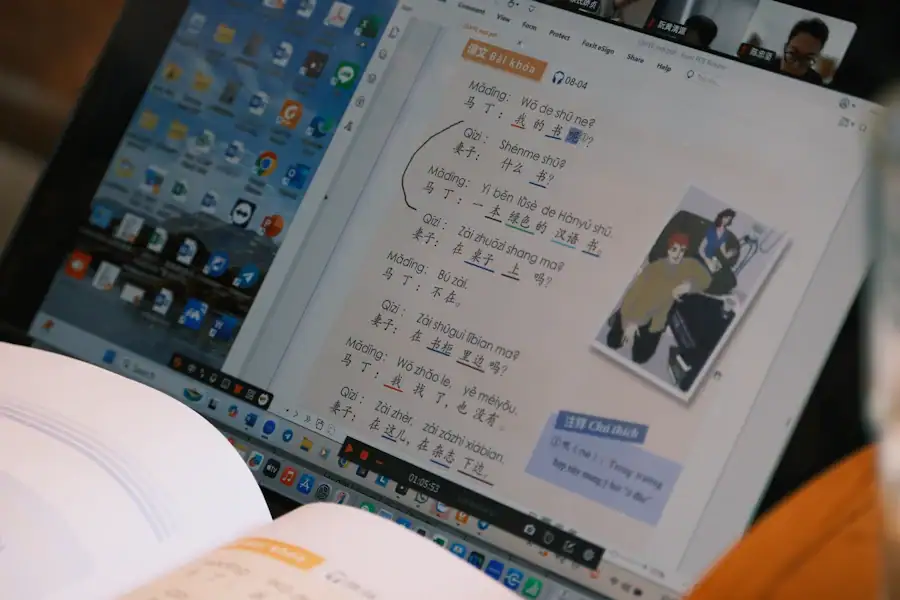 Comment View Form Protect Foxit eSign Share Help
课文 Bài khóa
08-04
Mǎdīng: Wǒ de shū ne?
马丁：我的书呢①?
Qīzi: Shénme shū?
妻子：什么书?
Mǎdīng: Yì běn lǜsè de Hànyǔ shū.
马丁：一本绿色的汉语书。
Qīzi: Zài zhuōzi shang ma?
妻子：在桌子上吗?
Mǎdīng: Bú zài.
马丁：不在。
Qīzi: Zài shūguì lǐbian ma?
妻子：在书柜里边吗?
Mǎdīng: Wǒ zhǎo le, yě méiyǒu.
马丁：我找了，也没有。
Qīzi: Zài zhèr, zài zázhì xiàbian.
妻子：在这儿，在杂志下边。
注释 Chú thích
①呢 (ne): Trong trường
hợp này mang ý hỏi "ở đâu"
Search
01:05:53